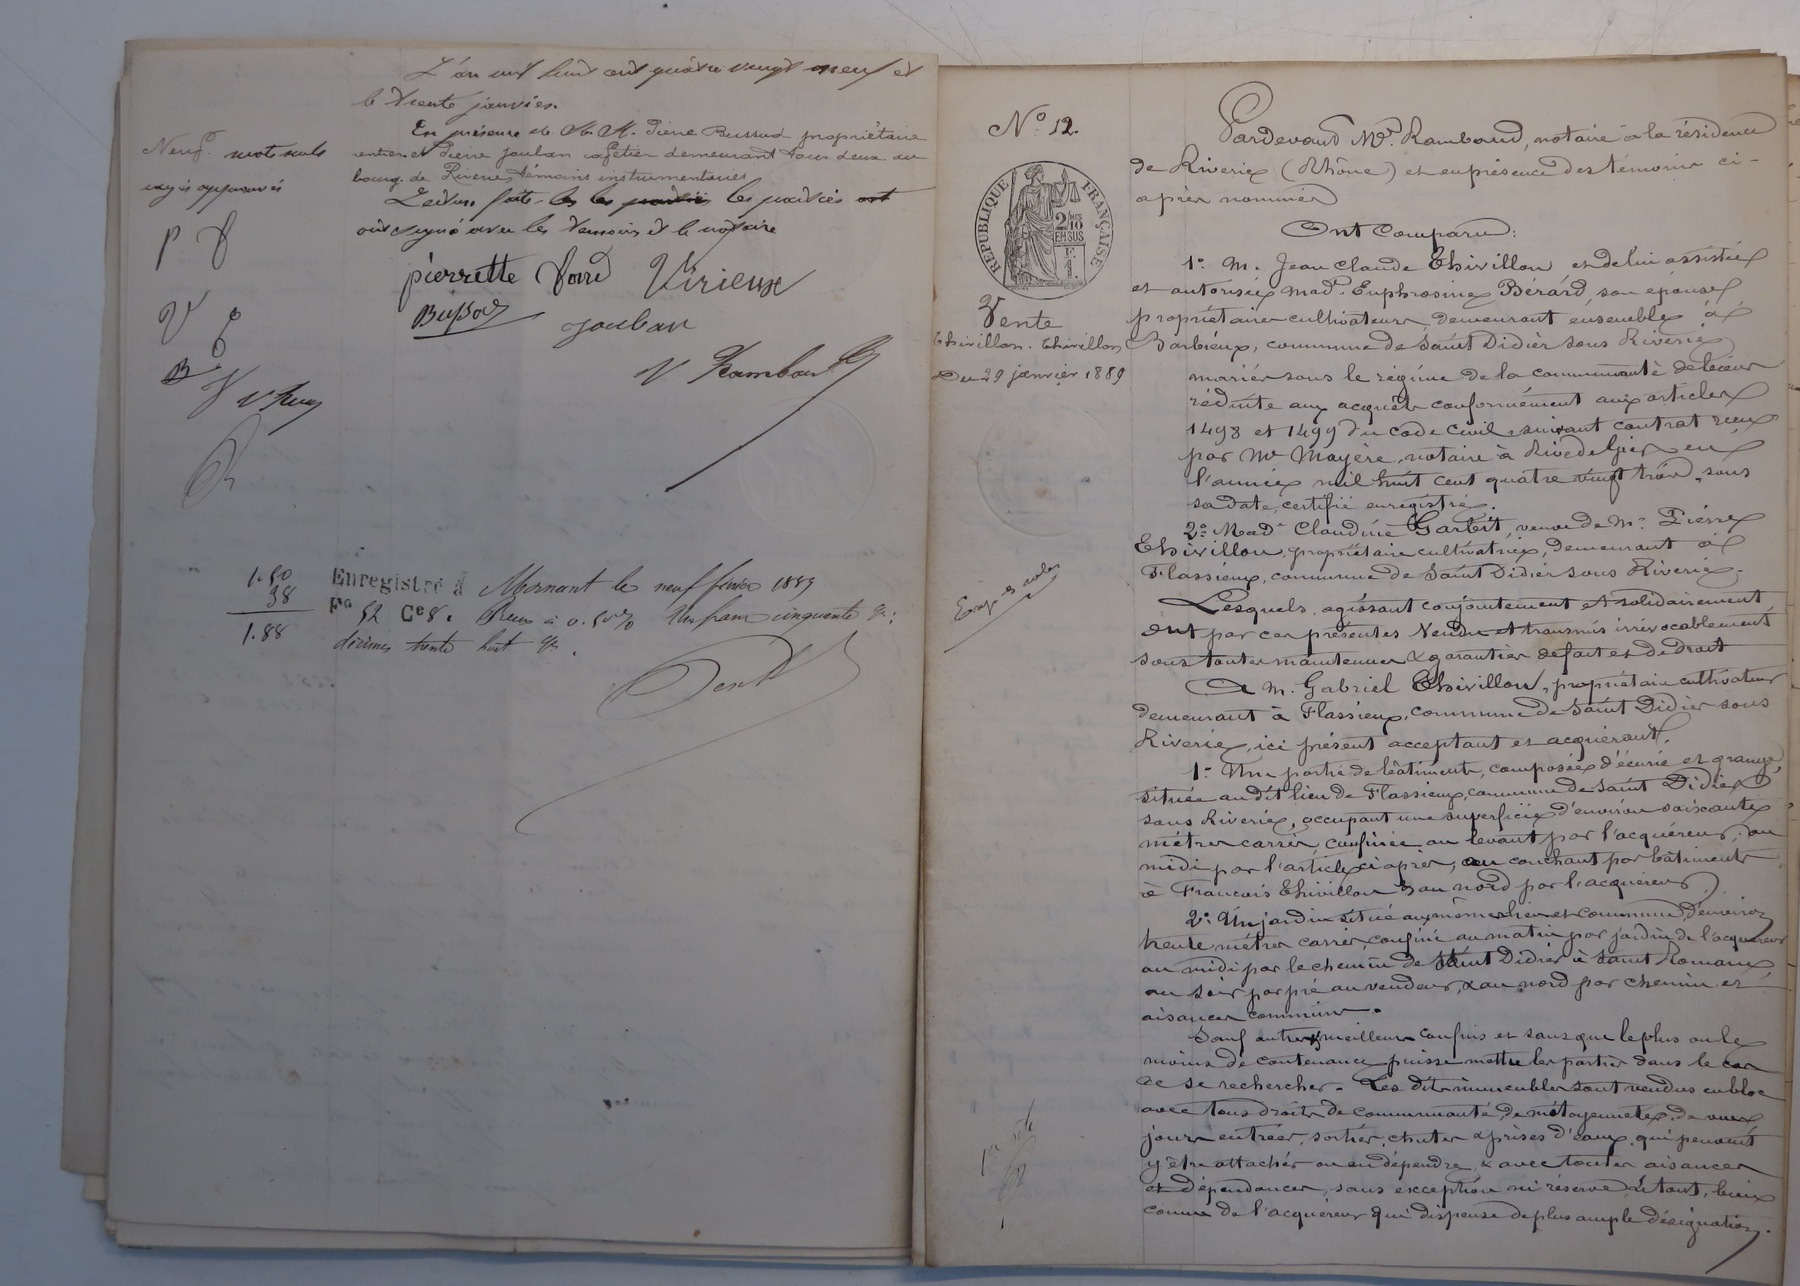 L'an mil huit cent quatre vingt neuf et
le trente janvier.
En présence de M. M. Pierre Bussod propriétaire
rentier et Pierre Jouban cafetier demeurant tous deux au
bourg de Riverie, témoins instrumentaires
Lecture faite, les les parties les parties ont
ont signé avec les témoins et le notaire
Neuf mots nuls
rayés approuvés
pierrette Virieux
Bussod
Jouban
V Rambaud
1.50
38
1.88
Enregistré à Mornant le neuf février 1889
Fo 52 Ce 8. Reçu à 0.50 % Un franc cinquante cs:
décimes trente huit cs.
No 12.
RÉPUBLIQUE FRANÇAISE
2/10 MES
EN SUS
F.
1.
Vente
Thivillon. Thivillon
Du 29 janvier 1889
1er rôle
Pardevant Me. Rambaud, notaire à la résidence
de Riverie (Rhône) et en présence des témoins ci-
après nommés
Ont Comparu:
1o M. Jean Claude Thivillon, et de lui assistée
et autorisée Made. Euphrosine Bérard, son épouse
propriétaires cultivateurs, demeurant ensemble à
Barbieux, commune de Saint Didier sous Riverie
mariés sous le régime de la communauté de biens
réduite aux acquêts conformément aux articles
1498 et 1499 du code civil, suivant contrat reçu
par Me Mayère, notaire à Rive de Gier en
l'année mil huit cent quatre vingt trois, sous
sa date, certifié enregistré.
2o Made Claudine Garbit, veuve de Mr Pierre
Thivillon, propriétaire cultivatrice, demeurant à
Flassieux, commune de Saint Didier sous Riverie.
Lesquels, agissant conjointement et solidairement
ont par ces présentes Vendu et transmis irrévocablement
sous toutes maintenues & garanties de fait et de droit
A M. Gabriel Thivillon, propriétaire cultivateur
demeurant à Flassieux, commune de Saint Didier sous
Riverie, ici présent acceptant et acquéreur.
1o Une partie de bâtiments, composée d'écurie et grange,
située au dit lieu de Flassieux, commune de Saint Didier
sous Riverie, occupant une superficie d'environ soixante
mètres carrés, confinée au levant par l'acquéreur, au
midi par l'article ci après, au couchant par bâtiments
à François Thivillon & au nord par l'acquéreur
2o Un jardin situé aux mêmes lieu et commune, d'environ
trente mètres carrés, confiné au matin par jardin de l'acquéreur
au midi par le chemin de Saint Didier à Saint Romain,
au soir par pré au vendeur, & au nord par chemin et
aisances communs.
Sauf autres & meilleurs confins et sans que le plus ou le
moins de contenance puisse mettre les parties dans le cas
de se rechercher. Les dits immeubles sont vendus en bloc
avec tous droits de communauté, de mitoyenneté, de vues
jours entrées, sorties, chutes & prises d'eaux, qui peuvent
y être attachés ou en dépendre, & avec toutes aisances
et dépendances, sans exception ni réserve, le tout, bien
connu de l'acquéreur qui dispense de plus ample désignation.